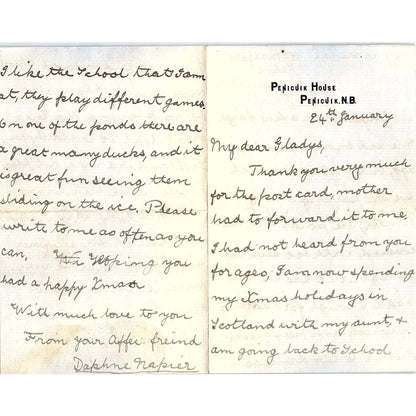 PENICUIK HOUSE
PENICUIK. N.B.
24th January
My dear Gladys,
Thank you very much
for the post card, mother
had to forward it to me,
I had not heard from you
for ages, I am now spending
my Xmas holidays in
Scotland with my aunt, &
am going back to School
I like the School that I am
at, they play different games.
On one of the ponds there are
a great many ducks, and it
is great fun seeing them
sliding on the ice. Please
write to me as often as you
can, Hoping you
had a happy Xmas
With much love to you
From your Affec: freind
Daphne Napier